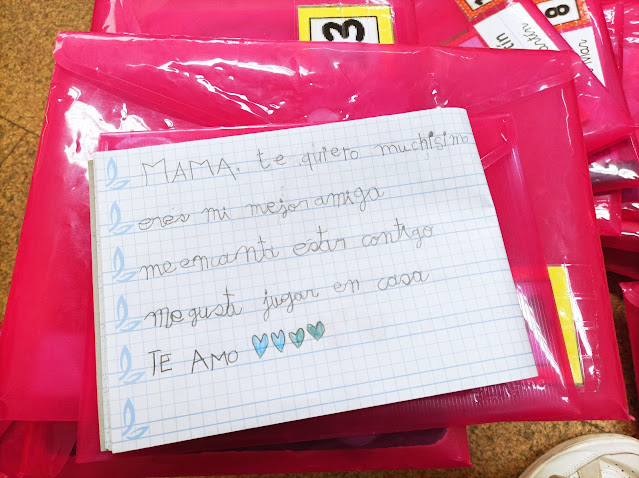 3
8
MAMA. te quiero muchísimo
eres mi mejor amiga
me encanta estar contigo
me gusta jugar en casa
TE AMO